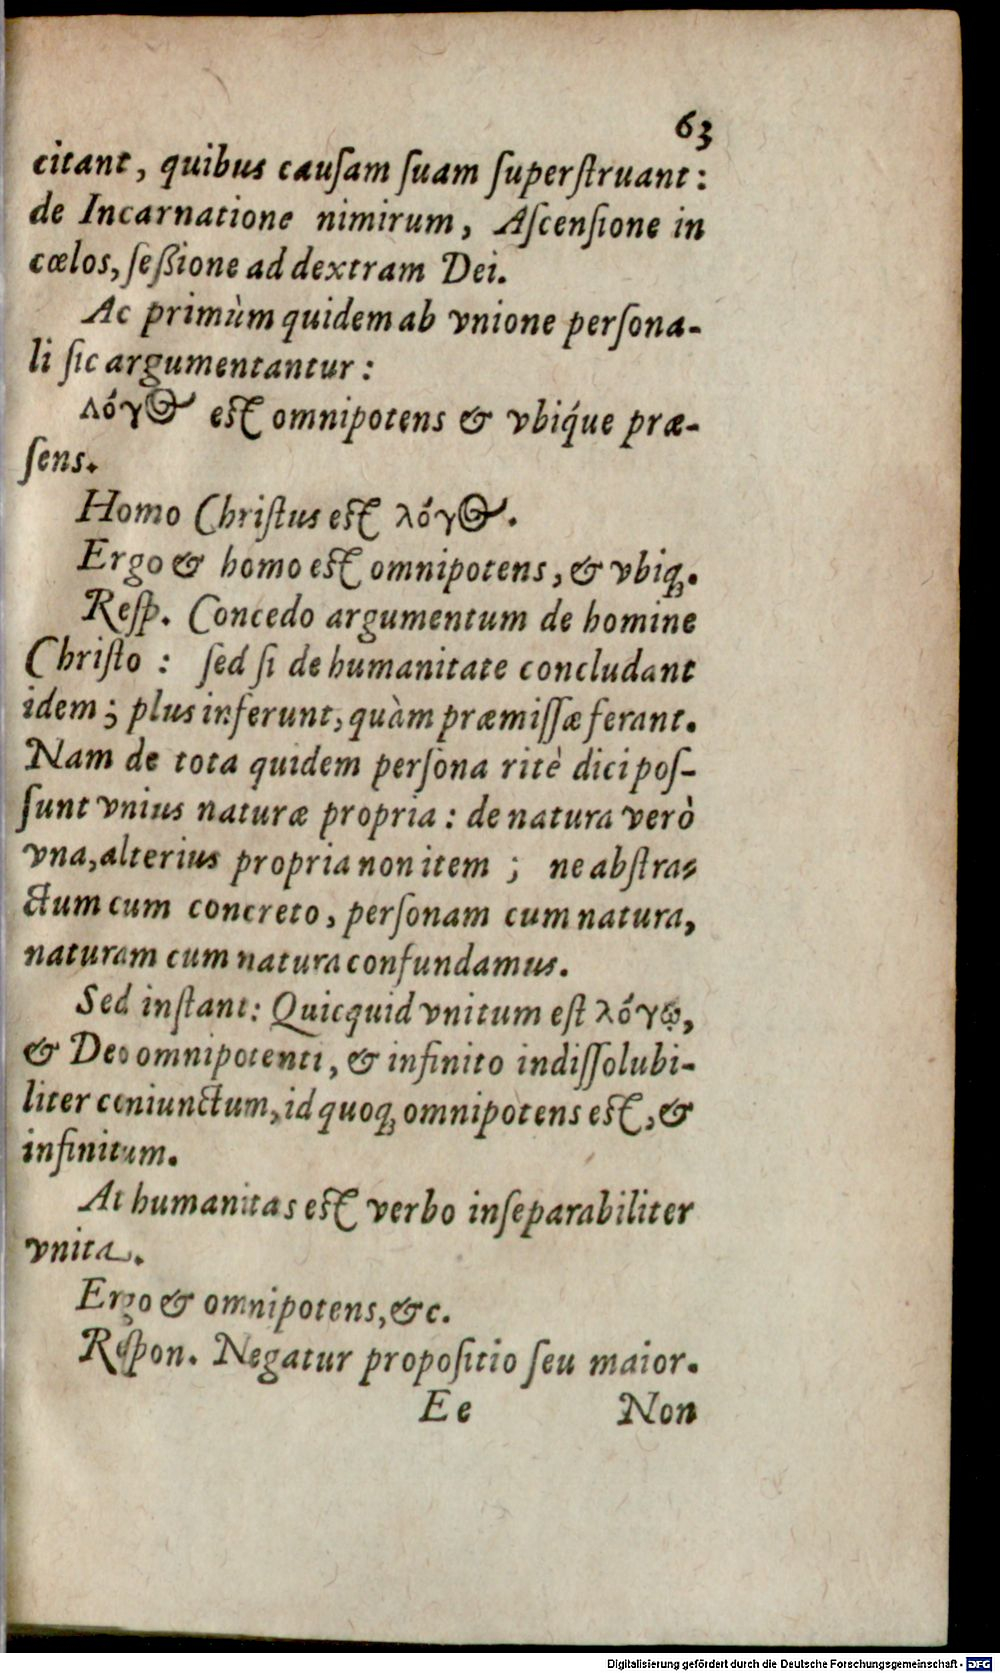 63
citant, quibus cauſam ſuam ſuperſtruant:
de Incarnatione nimirum, Aſcenſione in
cœlos, ſeßione ad dextram Dei.
Ac primùm quidem ab vnione perſona-
li ſic argumentantur:
λόγ𝟾 eſt omnipotens & vbiq́ue præ-
ſens.
Homo Chriſtus eſt λόγ𝟾.
Ergo & homo eſt omnipotens, & vbiq;.
Reſp. Concedo argumentum de homine
Chriſto: ſed ſi de humanitate concludant
idem; plus inferunt, quàm præmiſſæ ferant.
Nam de tota quidem perſona ritè dici poſ-
ſunt vnius naturæ propria: de natura verò
vna, alterius propria non item; ne abſtra-
ctum cum concreto, perſonam cum natura,
naturam cum natura confundamus.
Sed inſtant: Quicquid vnitum eſt λόγῳ,
& Deo omnipotenti, & infinito indiſſolubi-
liter coniunctum, id quoq; omnipotens eſt, &
infinitum.
At humanitas eſt verbo inſeparabiliter
vnita.
Ergo & omnipotens, &c.
Reſpon. Negatur propoſitio ſeu maior.
Ee Non
Digitalisierung gefördert durch die Deutsche Forschungsgemeinschaft - DFG